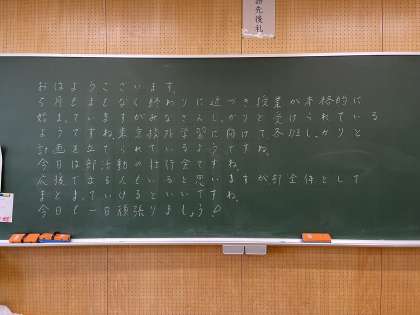 語先後礼
おはようございます。
5月もまもなく終わりに近づき授業が本格的に
始まっていますがみなさんしっかりと受けられている
ようですね。集団校外学習に向けて各班しっかりと
計画を立てられているようですね。
今日は部活動の壮行会ですね。
応援でまる人もいると思いますが部全体として
まとまっていけるといいですね。
今日も一日頑張りましょう!